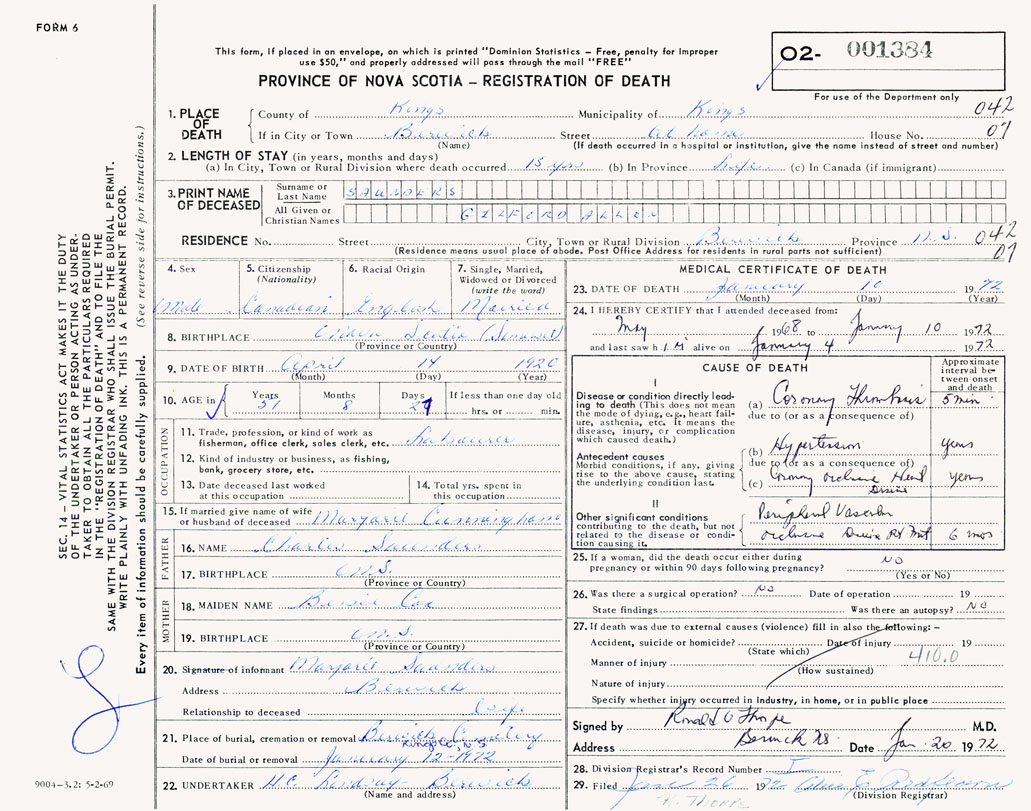 FORM 6
This form, if placed in an envelope, on which is printed "Dominion Statistics – Free, penalty for improper
use $50," and properly addressed will pass through the mail "FREE"
PROVINCE OF NOVA SCOTIA – REGISTRATION OF DEATH
O2- 001384
For use of the Department only
042
07
1. PLACE OF DEATH
County of Kings Municipality of Kings
If in City or Town Berwick Street At home House No.
(Name) (If death occurred in a hospital or institution, give the name instead of street and number)
2. LENGTH OF STAY (in years, months and days)
(a) In City, Town or Rural Division where death occurred 15 yrs (b) In Province Life (c) In Canada (if immigrant)
3. PRINT NAME OF DECEASED
Surname or Last Name SAUNDERS
All Given or Christian Names GILFORD ALLEN
RESIDENCE No. Street City, Town or Rural Division Berwick Province N.S. 042
(Residence means usual place of abode. Post Office Address for residents in rural parts not sufficient) 07
4. Sex Male
5. Citizenship (Nationality) Canadian
6. Racial Origin English
7. Single, Married, Widowed or Divorced (write the word) Married
8. BIRTHPLACE Nova Scotia
(Province or Country)
9. DATE OF BIRTH April 14 1920
(Month) (Day) (Year)
10. AGE in Years 51 Months 8 Days 27 If less than one day old hrs. or min.
OCCUPATION
11. Trade, profession, or kind of work as
fisherman, office clerk, sales clerk, etc. Labourer
12. Kind of industry or business, as fishing,
bank, grocery store, etc.
13. Date deceased last worked
at this occupation
14. Total yrs. spent in
this occupation
15. If married give name of wife
or husband of deceased Margaret Cunningham
FATHER
16. NAME Charles Saunders
17. BIRTHPLACE N.S.
(Province or Country)
MOTHER
18. MAIDEN NAME Bessie Cox
19. BIRTHPLACE N.S.
(Province or Country)
20. Signature of informant Margaret Saunders
Address Berwick
Relationship to deceased Wife
21. Place of burial, cremation or removal Berwick Cemetery
Kings Co., N.S.
Date of burial or removal January 12 - 1972
22. UNDERTAKER H.C. Lindsay - Berwick
(Name and address)
MEDICAL CERTIFICATE OF DEATH
23. DATE OF DEATH January 10 1972
(Month) (Day) (Year)
24. I HEREBY CERTIFY that I attended deceased from:
May 1968 to January 10 1972
and last saw h IM alive on January 4 1972
CAUSE OF DEATH
Approximate interval between onset and death
I
Disease or condition directly leading to death (This does not mean the mode of dying, e.g., heart failure, asthenia, etc. It means the disease, injury, or complication which caused death.)
(a) Coronary Thrombosis 5 min
due to (or as a consequence of)
Antecedent causes
Morbid conditions, if any, giving rise to the above cause, stating the underlying condition last.
(b) Hypertension years
due to (or as a consequence of)
(c) Coronary occlusive Heart Disease years
II
Other significant conditions contributing to the death, but not related to the disease or condition causing it.
Peripheral Vascular
occlusive Disease 6 mos
25. If a woman, did the death occur either during
pregnancy or within 90 days following pregnancy? NO
(Yes or No)
26. Was there a surgical operation? NO Date of operation 19
State findings Was there an autopsy? NO
27. If death was due to external causes (violence) fill in also the following: –
Accident, suicide or homicide? Date of injury 19
(State which)
Manner of injury 410.0
(How sustained)
Nature of injury
Specify whether injury occurred in industry, in home, or in public place
Signed by Ronald O Thorpe M.D.
Address Berwick NS Date Jan. 20 1972
28. Division Registrar's Record Number
29. Filed 26 19
(Division Registrar)
R. Thorpe
SEC. 14 – VITAL STATISTICS ACT MAKES IT THE DUTY
OF THE UNDERTAKER OR PERSON ACTING AS UNDER-
TAKER TO OBTAIN ALL THE PARTICULARS REQUIRED
IN THE "REGISTRATION OF DEATH" AND TO FILE THE
SAME WITH THE DIVISION REGISTRAR WHO SHALL ISSUE THE BURIAL PERMIT.
WRITE PLAINLY WITH UNFADING INK. THIS IS A PERMANENT RECORD.
Every item of information should be carefully supplied. (See reverse side for instructions.)
9004-3.2: 5-2-69